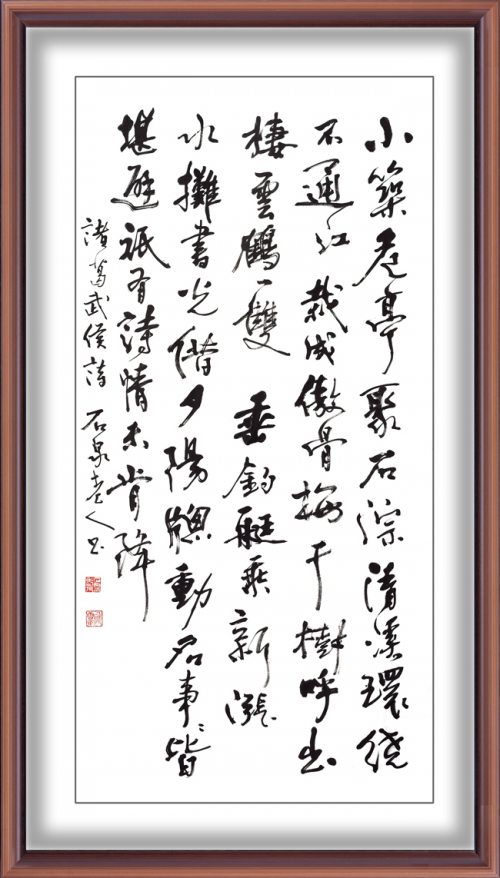 小築危亭聚石淙清溪環繞
不通江栽成傲骨梅千樹呼出
棲雲鶴一雙垂釣艇乘新漲
水攤書光借夕陽牕動名事事皆
堪避祇有詩情未肯降
諸葛武侯詩 石泉老人书